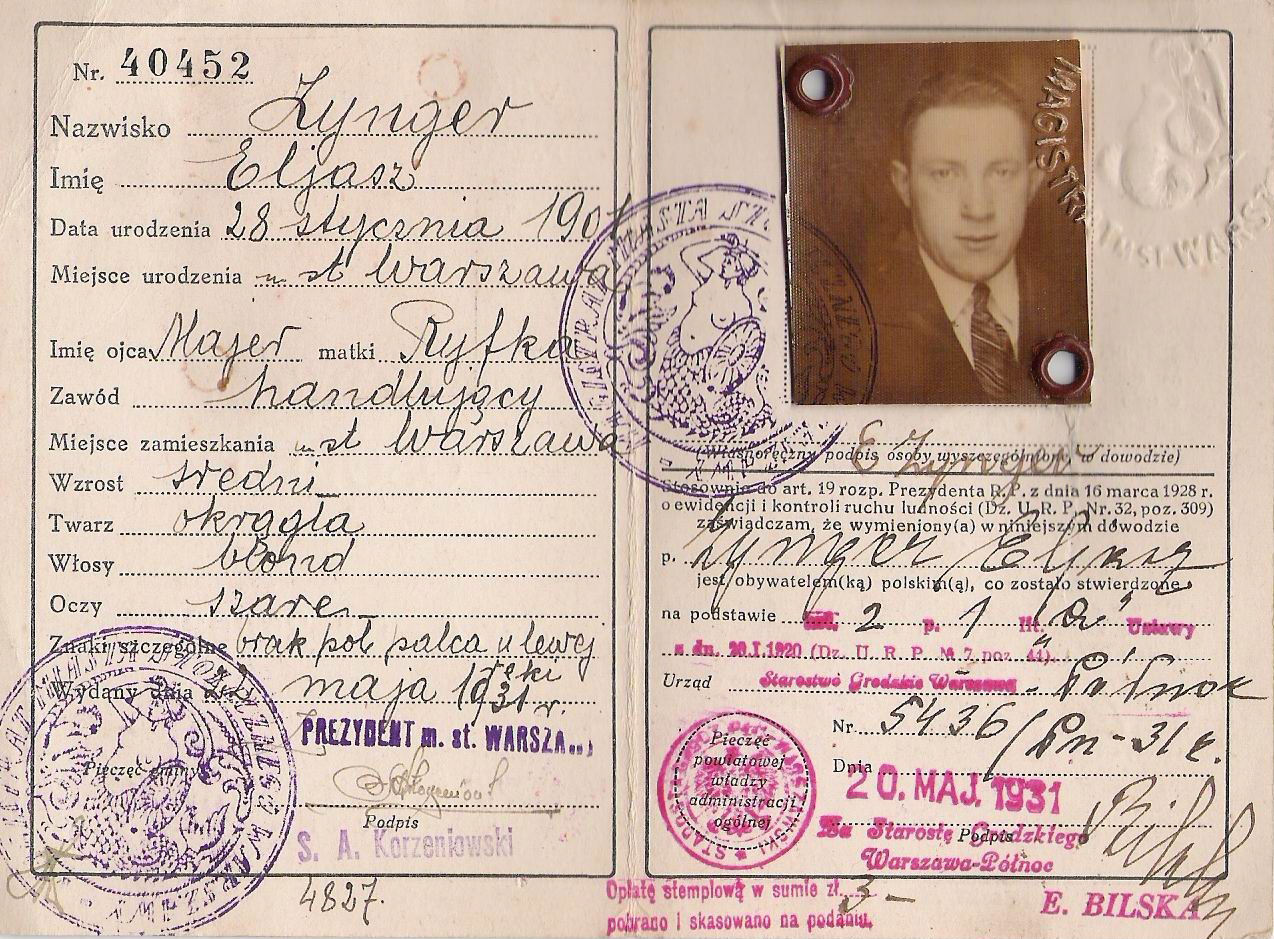 Nr. 40452
Nazwisko Zynger
Imię Eljasz
Data urodzenia 28 stycznia 190
Miejsce urodzenia m. st. Warszawa
Imię ojca Majer matki Ryfka
Zawód handlujący
Miejsce zamieszkania m. st. Warszawa
Wzrost średni
Twarz okrągła
Włosy blond
Oczy szare
Znaki szczególne brak poł. palca u lewej
ręki
Wydany dnia maja 1931 r.
PREZYDENT m. st. WARSZA
Pieczęć gminy
Podpis
S. A. Korzeniowski
4827.
MAGISTRAT
M. ST. WARSZ
(Własnoręczny podpis osoby wyszczególnionej w dowodzie)
E Zynger
Stosownie do art. 19 rozp. Prezydenta R. P. z dnia 16 marca 1928 r.
o ewidencji i kontroli ruchu ludności (Dz. U. R. P. Nr. 32, poz. 309)
zaświadczam, że wymieniony(a) w niniejszym dowodzie
p. Zynger Eljasz
jest obywatelem(ką) polskim(ą), co zostało stwierdzone
na podstawie art. 2 p. 1 lit. a Ustawy
z dn. 20.I.1920 (Dz. U. R. P. № 7, poz. 44).
Urząd Starostwo Grodzkie Warszawa - Północ
Nr. 5436/Pn-31 r.
Pieczęć
powiatowej
władzy
administracji
ogólnej
Dnia 20. MAJ. 1931
Za Starostę Grodzkiego
Podpis
Warszawa-Północ
Opłatę stemplową w sumie zł. 3-
pobrano i skasowano na podaniu.
E. BILSKA